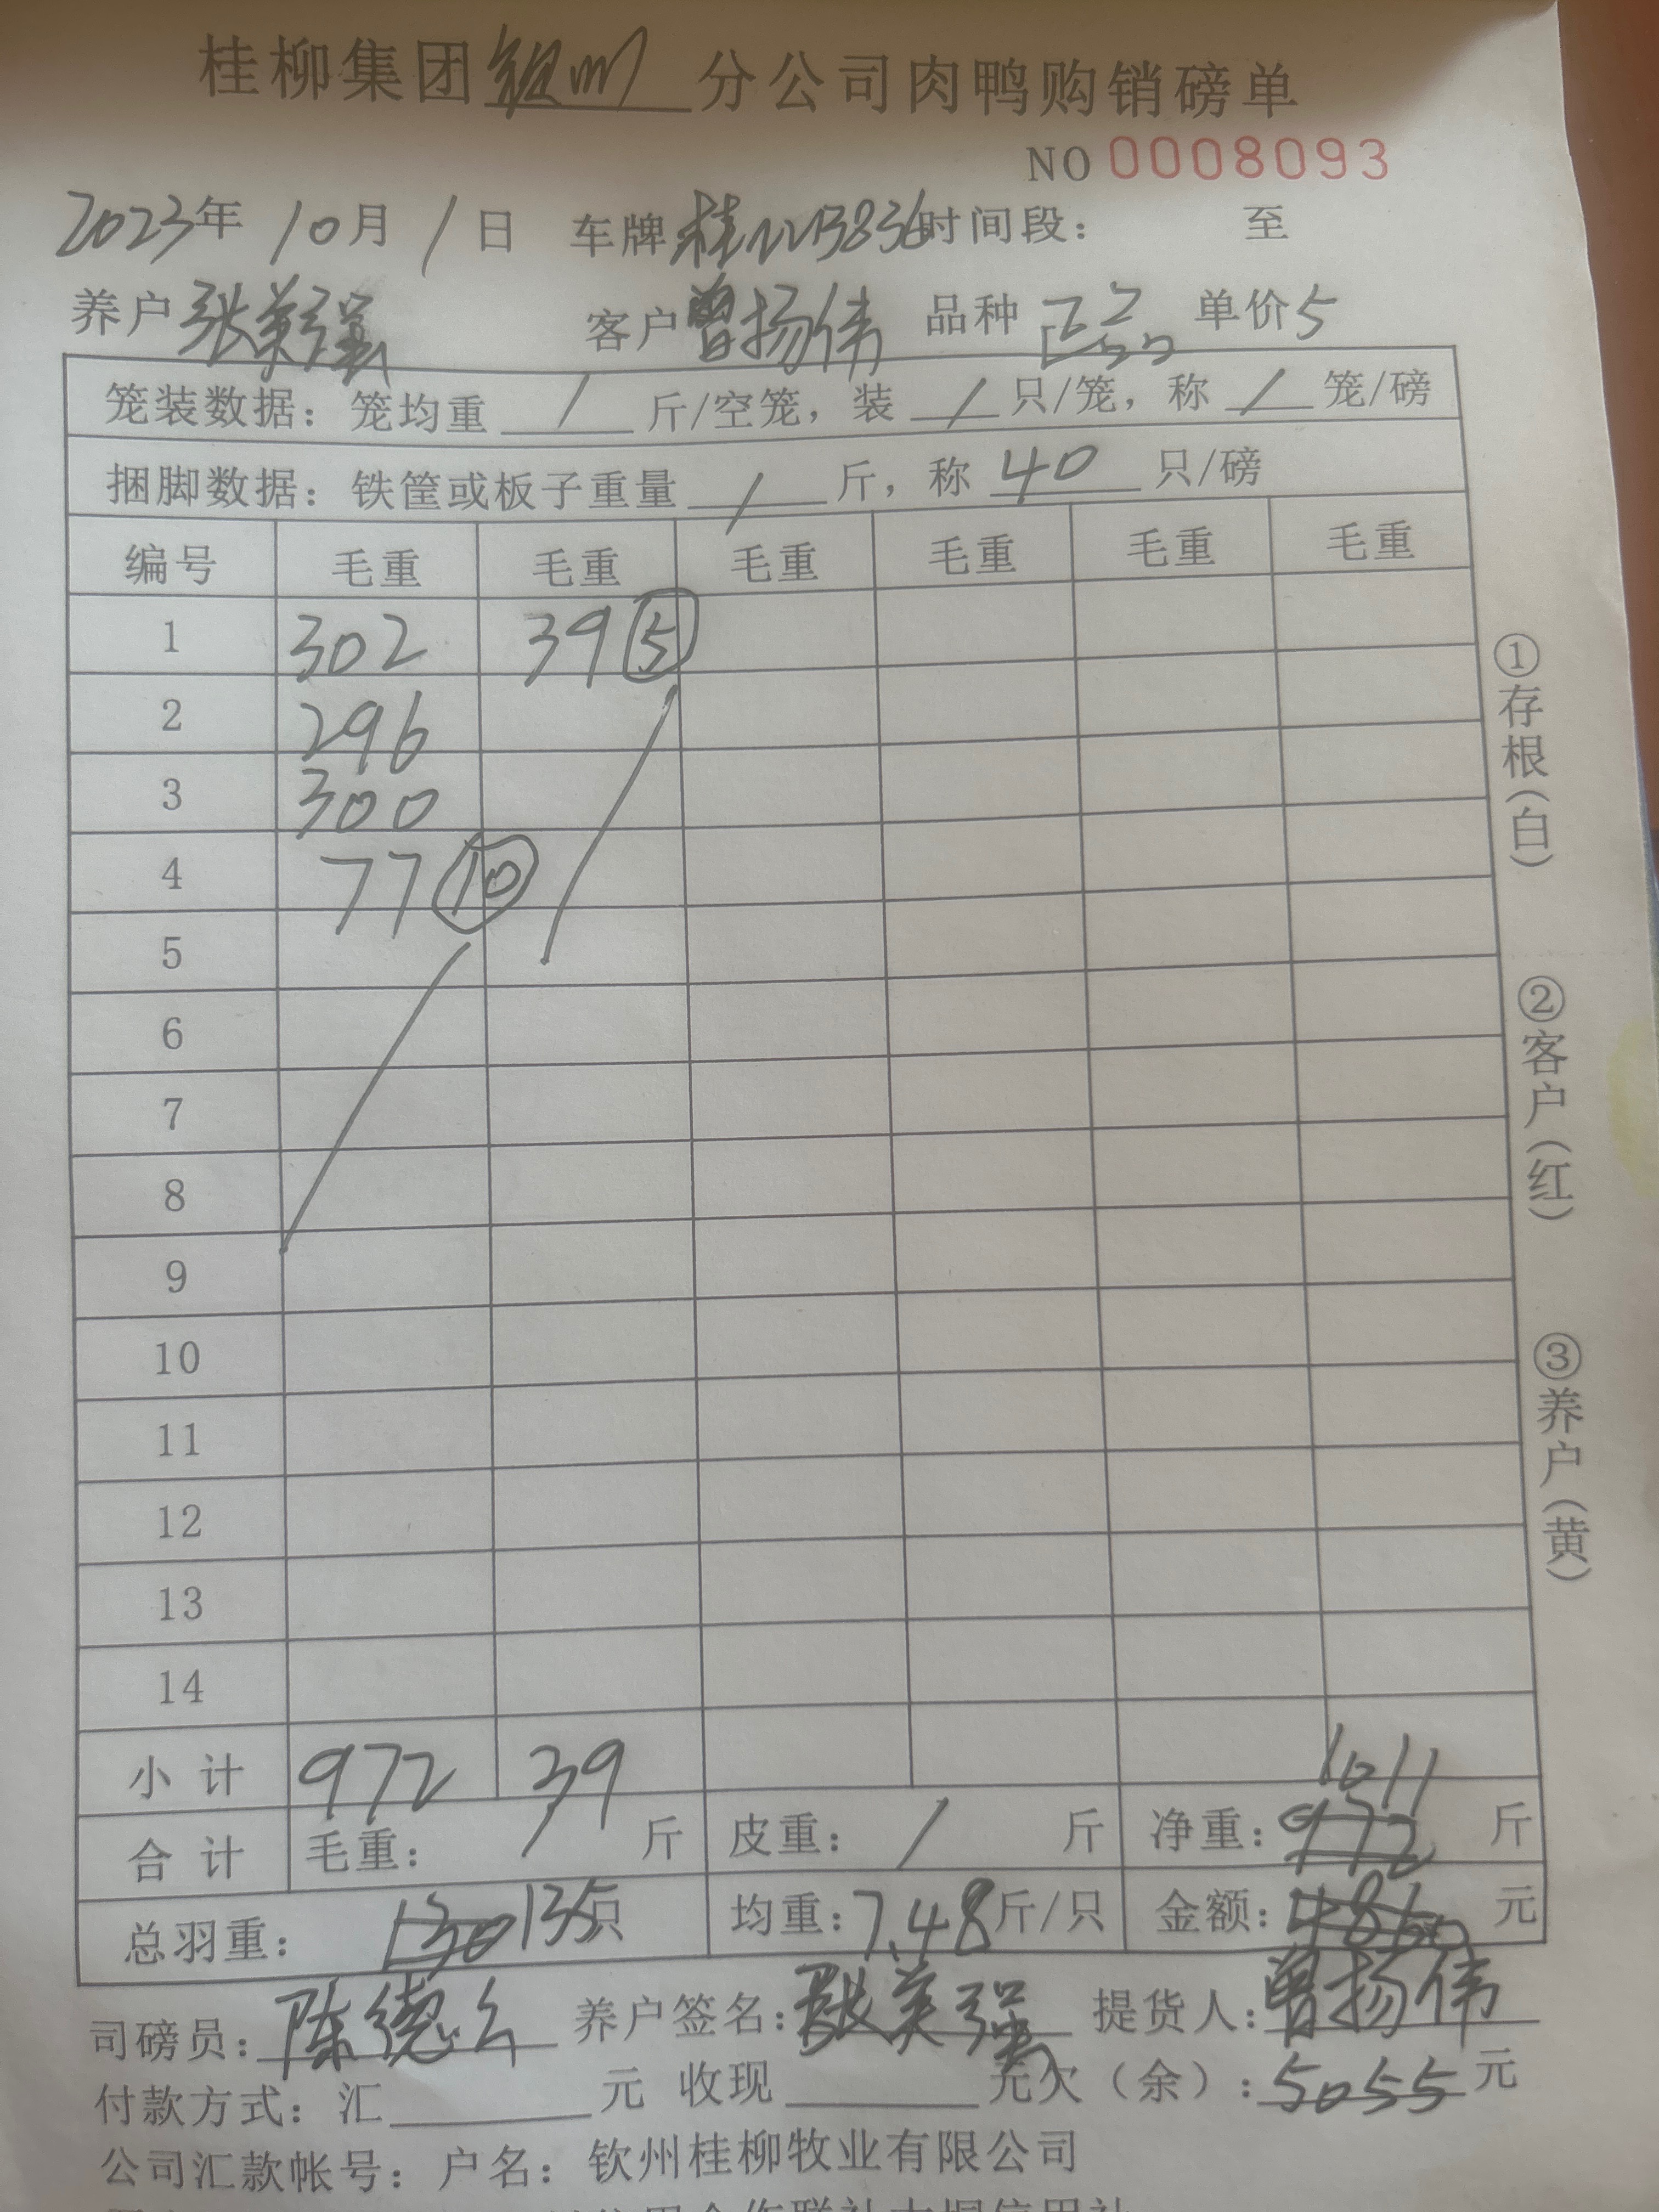 桂柳集团钦州分公司肉鸭购销磅单
NO 0008093
2023年 10月 1日 车牌桂 3836时间段: 至
养户张美强 客户曾扬伟 品种 正品 单价5
笼装数据: 笼均重 / 斤/空笼, 装 / 只/笼, 称 / 笼/磅
捆脚数据: 铁筐或板子重量 / 斤, 称 40 只/磅
编号 毛重 毛重 毛重 毛重 毛重 毛重
1 302 39 ⑤
2 296
3 300
4 77 ⑩
5
6
7
8
9
10
11
12
13
14
小计 972 39
1011
合计 毛重: / 斤 皮重: / 斤 净重: 972 斤
总羽重: 130 135只 均重: 7.48斤/只 金额: 4860 元
司磅员: 陈德 养户签名: 张美强 提货人: 曾扬伟
付款方式: 汇 元 收现 元欠(余): 5055元
公司汇款帐号: 户名: 钦州桂柳牧业有限公司
①存根(白)
②客户(红)
③养户(黄)